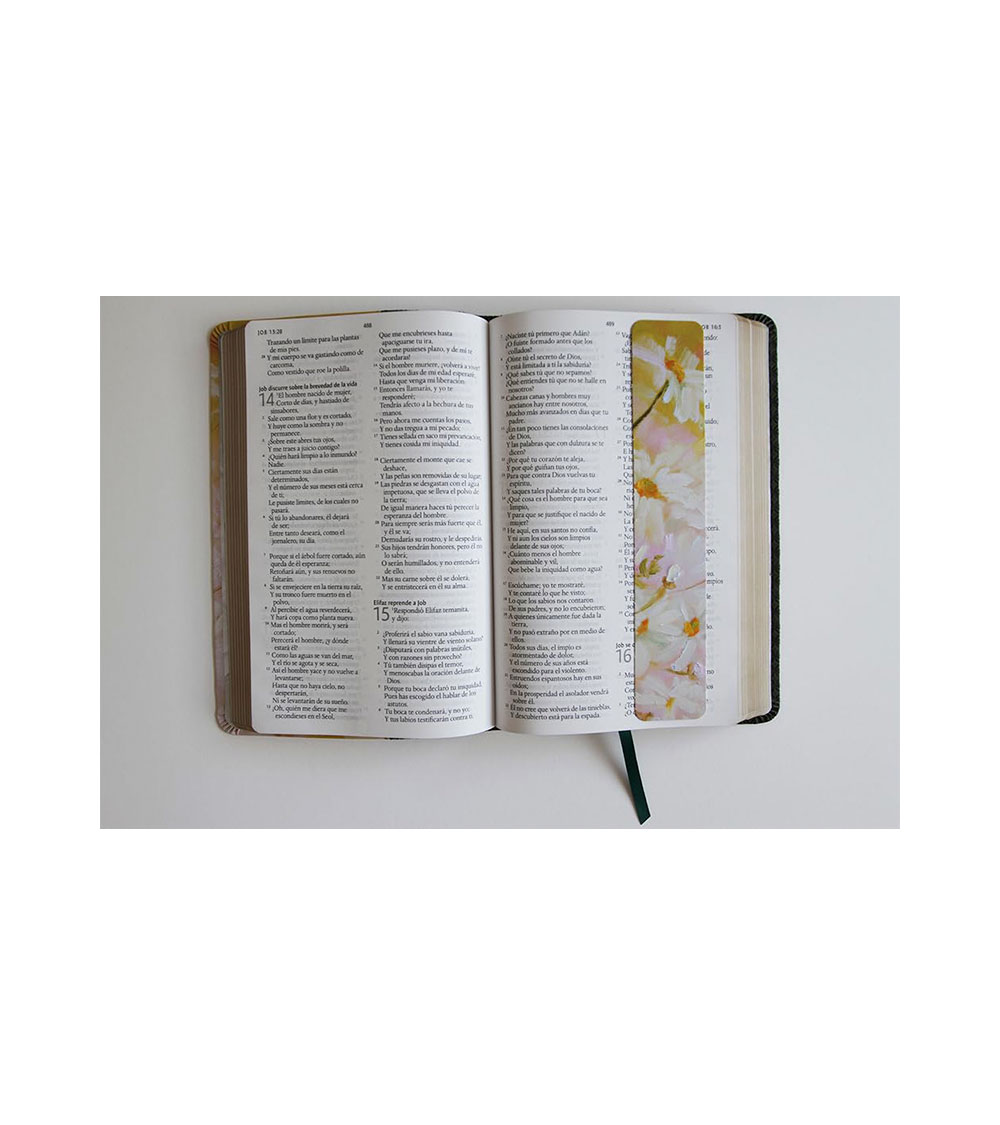 JOB 13:28
Trazando un límite para las plantas
de mis pies.
28 Y mi cuerpo se va gastando como de
carcoma,
Como vestido que roe la polilla.
Job discurre sobre la brevedad de la vida
14 1 El hombre nacido de mujer,
Corto de días, y hastiado de
sinsabores,
2 Sale como una flor y es cortado,
Y huye como la sombra y no
permanece.
3 ¿Sobre éste abres tus ojos,
Y me traes a juicio contigo?
4 ¿Quién hará limpio a lo inmundo?
Nadie.
5 Ciertamente sus días están
determinados,
Y el número de sus meses está cerca
de ti;
Le pusiste límites, de los cuales no
pasará.
6 Si tú lo abandonares, él dejará
de ser;
Entre tanto deseará, como el
jornalero, su día.
7 Porque si el árbol fuere cortado, aún
queda de él esperanza;
Retoñará aún, y sus renuevos no
faltarán.
8 Si se envejeciere en la tierra su raíz,
Y su tronco fuere muerto en el
polvo,
9 Al percibir el agua reverdecerá,
Y hará copa como planta nueva.
10 Mas el hombre morirá, y será
cortado;
Perecerá el hombre, ¿y dónde
estará él?
11 Como las aguas se van del mar,
Y el río se agota y se seca,
12 Así el hombre yace y no vuelve a
levantarse;
Hasta que no haya cielo, no
despertarán,
Ni se levantarán de su sueño.
13 ¡Oh, quién me diera que me
escondieses en el Seol,
488
Que me encubrieses hasta
apaciguarse tu ira,
Que me pusieses plazo, y de mí te
acordaras!
14 Si el hombre muriere, ¿volverá a vivir?
Todos los días de mi edad esperaré,
Hasta que venga mi liberación.
15 Entonces llamarás, y yo te
responderé;
Tendrás afecto a la hechura de tus
manos.
16 Pero ahora me cuentas los pasos,
Y no das tregua a mi pecado;
17 Tienes sellada en saco mi prevaricación,
Y tienes cosida mi iniquidad.
18 Ciertamente el monte que cae se
deshace,
Y las peñas son removidas de su lugar;
19 Las piedras se desgastan con el agua
impetuosa, que se lleva el polvo de
la tierra;
De igual manera haces tú perecer la
esperanza del hombre.
20 Para siempre serás más fuerte que él,
y él se va;
Demudarás su rostro, y le despedirás.
21 Sus hijos tendrán honores, pero él no
lo sabrá;
O serán humillados, y no entenderá
de ello.
22 Mas su carne sobre él se dolerá,
Y se entristecerá en él su alma.
Elifaz reprende a Job
15 1 Respondió Elifaz temanita,
y dijo:
2 ¿Proferirá el sabio vana sabiduría,
Y llenará su vientre de viento solano?
3 ¿Disputará con palabras inútiles,
Y con razones sin provecho?
4 Tú también disipas el temor,
Y menoscabas la oración delante de
Dios.
5 Porque tu boca declaró tu iniquidad,
Pues has escogido el hablar de los
astutos.
6 Tu boca te condenará, y no yo;
Y tus labios testificarán contra ti.
489
7 ¿Naciste tú primero que Adán?
¿O fuiste formado antes que los
collados?
8 ¿Oíste tú el secreto de Dios,
Y está limitada a ti la sabiduría?
9 ¿Qué sabes tú que no sepamos?
¿Qué entiendes tú que no se halle en
nosotros?
10 Cabezas canas y hombres muy
ancianos hay entre nosotros,
Mucho más avanzados en días que tu
padre.
11 ¿En tan poco tienes las consolaciones
de Dios,
Y las palabras que con dulzura se te
dicen?
12 ¿Por qué tu corazón te aleja,
Y por qué guiñan tus ojos,
13 Para que contra Dios vuelvas tu
espíritu,
Y saques tales palabras de tu boca?
14 ¿Qué cosa es el hombre para que sea
limpio,
Y para que se justifique el nacido de
mujer?
15 He aquí, en sus santos no confía,
Y ni aun los cielos son limpios
delante de sus ojos;
16 ¿Cuánto menos el hombre
abominable y vil,
Que bebe la iniquidad como agua?
17 Escúchame; yo te mostraré,
Y te contaré lo que he visto;
18 Lo que los sabios nos contaron
De sus padres, y no lo encubrieron;
19 A quienes únicamente fue dada la
tierra,
Y no pasó extraño por en medio de
ellos.
20 Todos sus días, el impío es
atormentado de dolor,
Y el número de sus años está
escondido para el violento.
21 Estruendos espantosos hay en sus
oídos;
En la prosperidad el asolador vendrá
sobre él.
22 Él no cree que volverá de las tinieblas,
Y descubierto está para la espada.
JOB 16:5
Job se
16